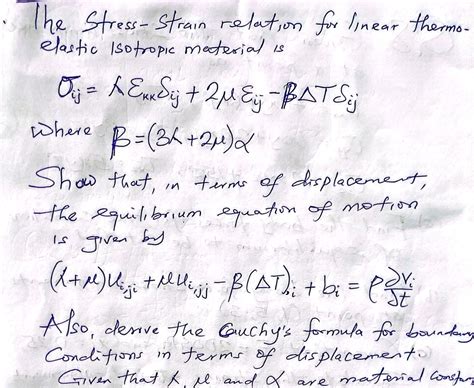 The Stress-Strain relation for linear thermo-
elastic Isotropic material is
σij = λ Εκκδij + 2μ Εij - βΔTδij
Where β = (3λ+2μ)α
Show that, in terms of displacement,
the equilibrium equation of motion
is given by
(λ+μ)Uj,ji + μUi,jj - β(ΔT),i + bi = ρ ∂Vi/∂t
Also, derive the Cauchy's formula for boundary
Conditions in terms of displacement.
Given that λ, μ and α are material